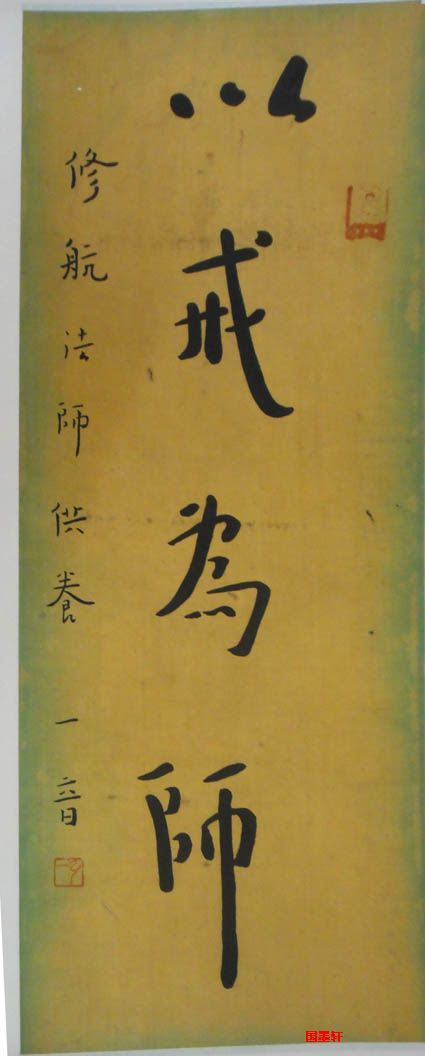 以戒為師
修航法師供養 一音
国墨轩